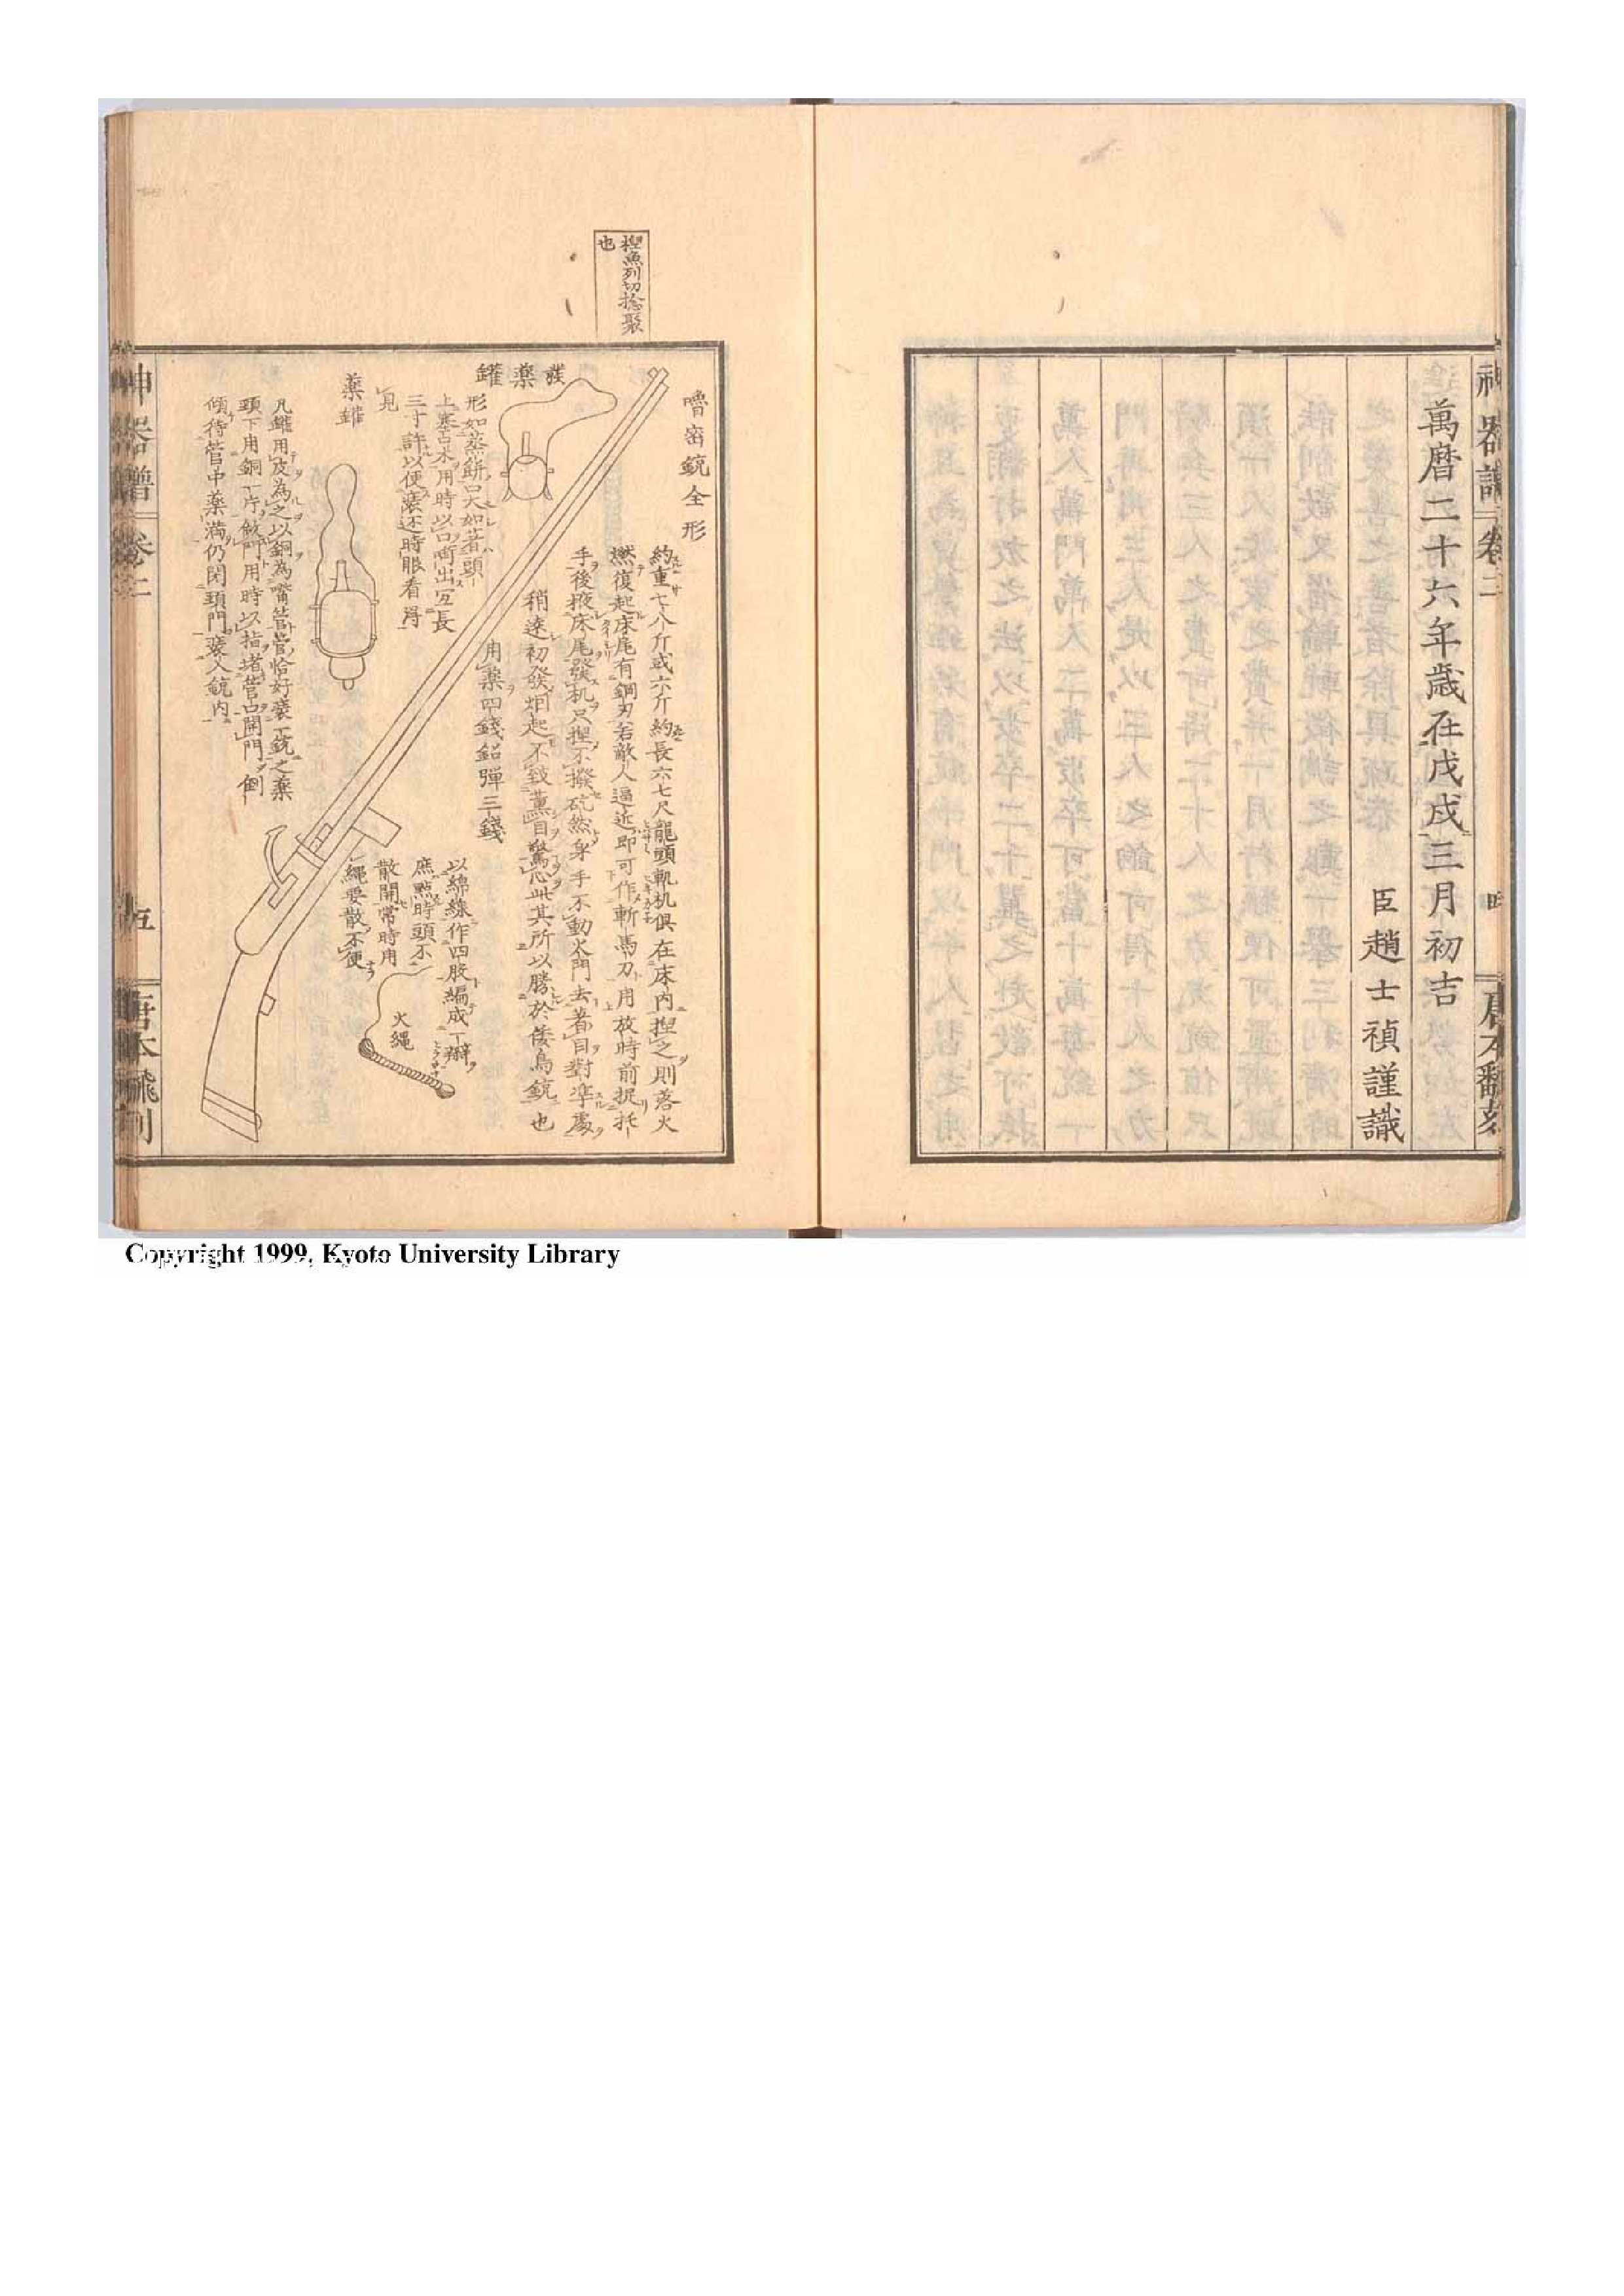 神器譜 卷二
萬曆二十六年歲在戊戌三月初吉
臣趙士禎謹識
四
唐本翻刻
揑魚列切捻聚
也
嚕宻銃全形
約重七八斤或六斤約長六七尺龍頭軌机俱在床内揑之則落火
燃復起床尾有鋼刃若敵人逼近即可作斬馬刀用放時前捉托
手後掖床尾發机只揑不撥砣然身手不動火門去著目對凖處
稍遠初發烟起不致薫目驚心此其所以勝於倭鳥銃也
用藥四錢鉛彈三錢
發藥罐
形如蒸餅口大如著頭
上塞占木用時以口啣出宐長
三寸許以便裝还時眼看得
見
以綿線作四股編成一辮
庶㸃時頭不
散開常時用
繩要散不便
火繩
藥罐
凡罐用皮為之以銅為嘴管管恰好裝一銃之藥
頸下用銅一片做門用時以指堵管口開門倒
傾待管中藥満仍閉頸門裝入銃内
神器譜 卷二
五
唐本翻刻
Copyright 1999, Kyoto University Library